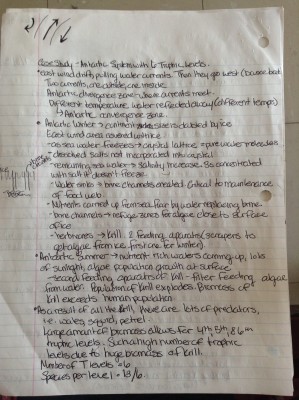 Case Study - Antarctic System with 6 Trophic Levels.
*east wind drift, pulling water currents. Then they go west
Two currents, one outside, one inside.
Antarctic divergence zone - where currents meet.
Different temperature, water reflected away (different temps)
→ Antarctic convergence zone.
*Antarctic Winter → continent size is doubled by ice
East wind area covered w/ ice
- as sea water freezes → crystal lattice of pure water molecules
- dissolved salts not incorporated into crystal
- remaining sea water → salinity increase. So concentrated
with salt it doesn't freeze.
- Water sinks → brine channels created. Critical to maintenance
of food web.
- Nutrients carried up from sea floor by water replacing brine.
- brine channels → refuge zones for algae close to surface
of ice
- herbivores → krill. 2 feeding apparatus (scrapers to
get algae from ice first one for winter).
*Antarctic Summer → nutrient rich waters coming up, lots
of sunlight, algae population growth at surface.
- second feeding apparatus of krill - filter feeding algae
from water. Population of krill explodes. Biomass of
krill exceeds human population.
*As a result of all this, there are lots of predators,
i.e. whales, squid, petrel.
Large amount of biomass allows for 4th, 5th, & 6th
trophic levels. Such a high number of trophic
levels due to huge biomass of krill.
Number of T levels = 6
Species per level = 13/6.